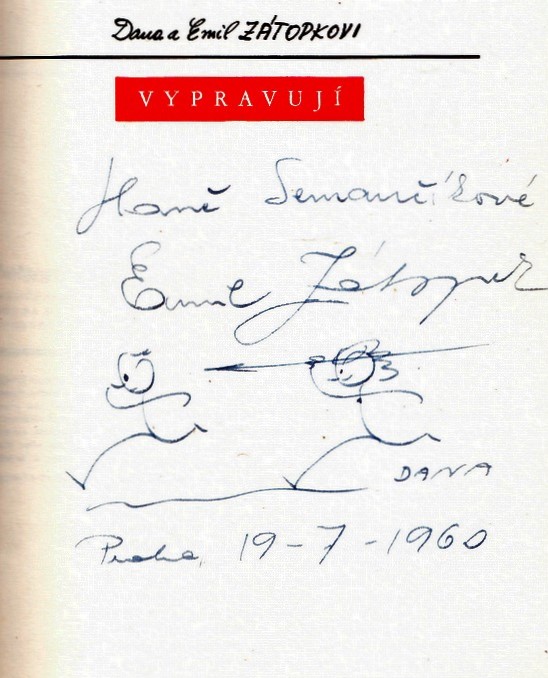 Dana a Emil ZÁTOPKOVI
VYPRAVUJÍ
Haně Semančíkové
Emil Zátopek
DANA
Praha, 19-7-1960